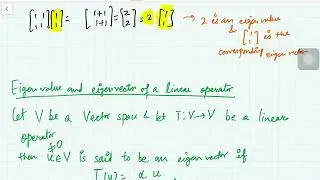 [1 1; 1 1] [1; 1] = [1+1; 1+1] = [2; 2] = 2 [1; 1]
→ 2 is an eigen value
& [1; 1] is the
corresponding eigen vector
Eigen value and eigenvector of a linear operator
Let V be a Vector space & let T: V → V be a linear
operator
then u ≠ 0 ∈ V is said to be an eigen vector if
T(u) = α u